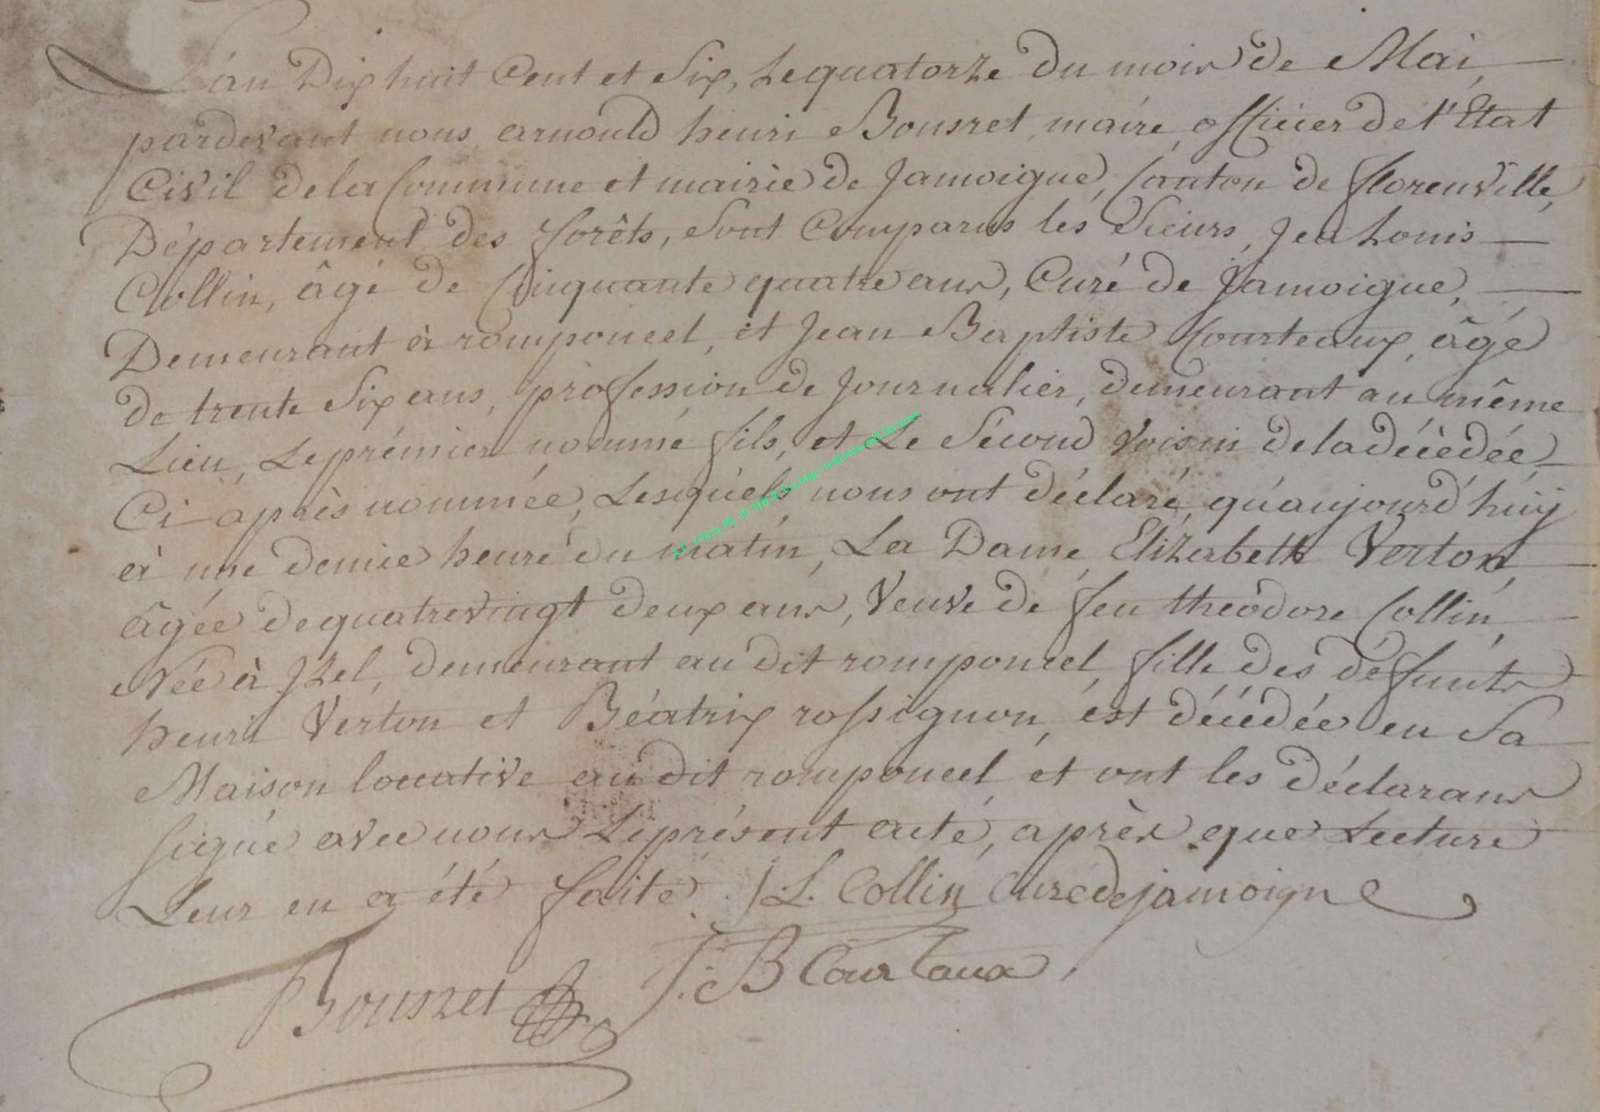 L'an Dix huit Cent et Six, Le quatorze du mois de Mai,
pardevant nous arnould henri Bousret, maire, officier de l'Etat
Civil de la Commune et mairie de Jamoigne, Canton de florenville,
Département des forêts, Sont Comparus les Sieurs, Jea Louis
Collin, âgé de Cinquante quatre ans, Curé de Jamoigne,
Demeurant à romponcel, et Jean Baptiste Courteaux, âgé
de trente Six ans, profession de Journalier, demeurant au même
Lieu, Le prémier nommé fils, et Le Sécond Voisin de la décèdée
Ci-après nommée, Lesquels nous ont déclaré, qu'aujourd'huÿ
à une demie heure du matin, La Dame Elizabeth Verton,
âgée de quatrevingt deux ans, Veuve de feu théodore Collin,
Née à Jzel, demeurant au dit romponcel, fille des défunts
henri Verton et Béatrix rossignon, est décédée en Sa
Maison locative au dit romponcel, et ont les déclarans
signé avec nous Le présent acte, après que Lecture
Leur en a été faite. J L. Collin Curé de jamoigne
Bousret J. B Courtaux